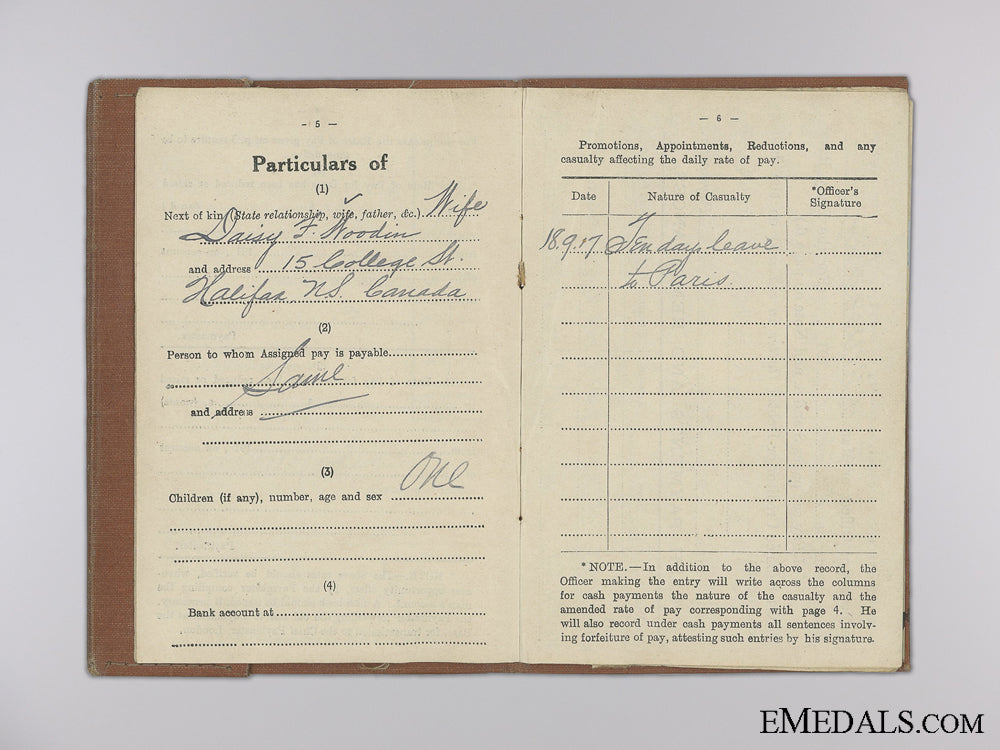 - 5 -
Particulars of
(1)
Next of kin (State relationship, wife, father, &c.) Wife
Daisy F. Woodin
and address 15 College St.
Halifax N.S. Canada
(2)
Person to whom Assigned pay is payable
Same
and address
(3)
Children (if any), number, age and sex One
(4)
Bank account at
- 6 -
Promotions, Appointments, Reductions, and any
casualty affecting the daily rate of pay.
Date Nature of Casualty *Officer's
Signature
18.9.17 Ten days leave
to Paris.
* NOTE.—In addition to the above record, the
Officer making the entry will write across the columns
for cash payments the nature of the casualty and the
amended rate of pay corresponding with page 4. He
will also record under cash payments all sentences involv-
ing forfeiture of pay, attesting such entries by his signature.
EMEDALS.COM